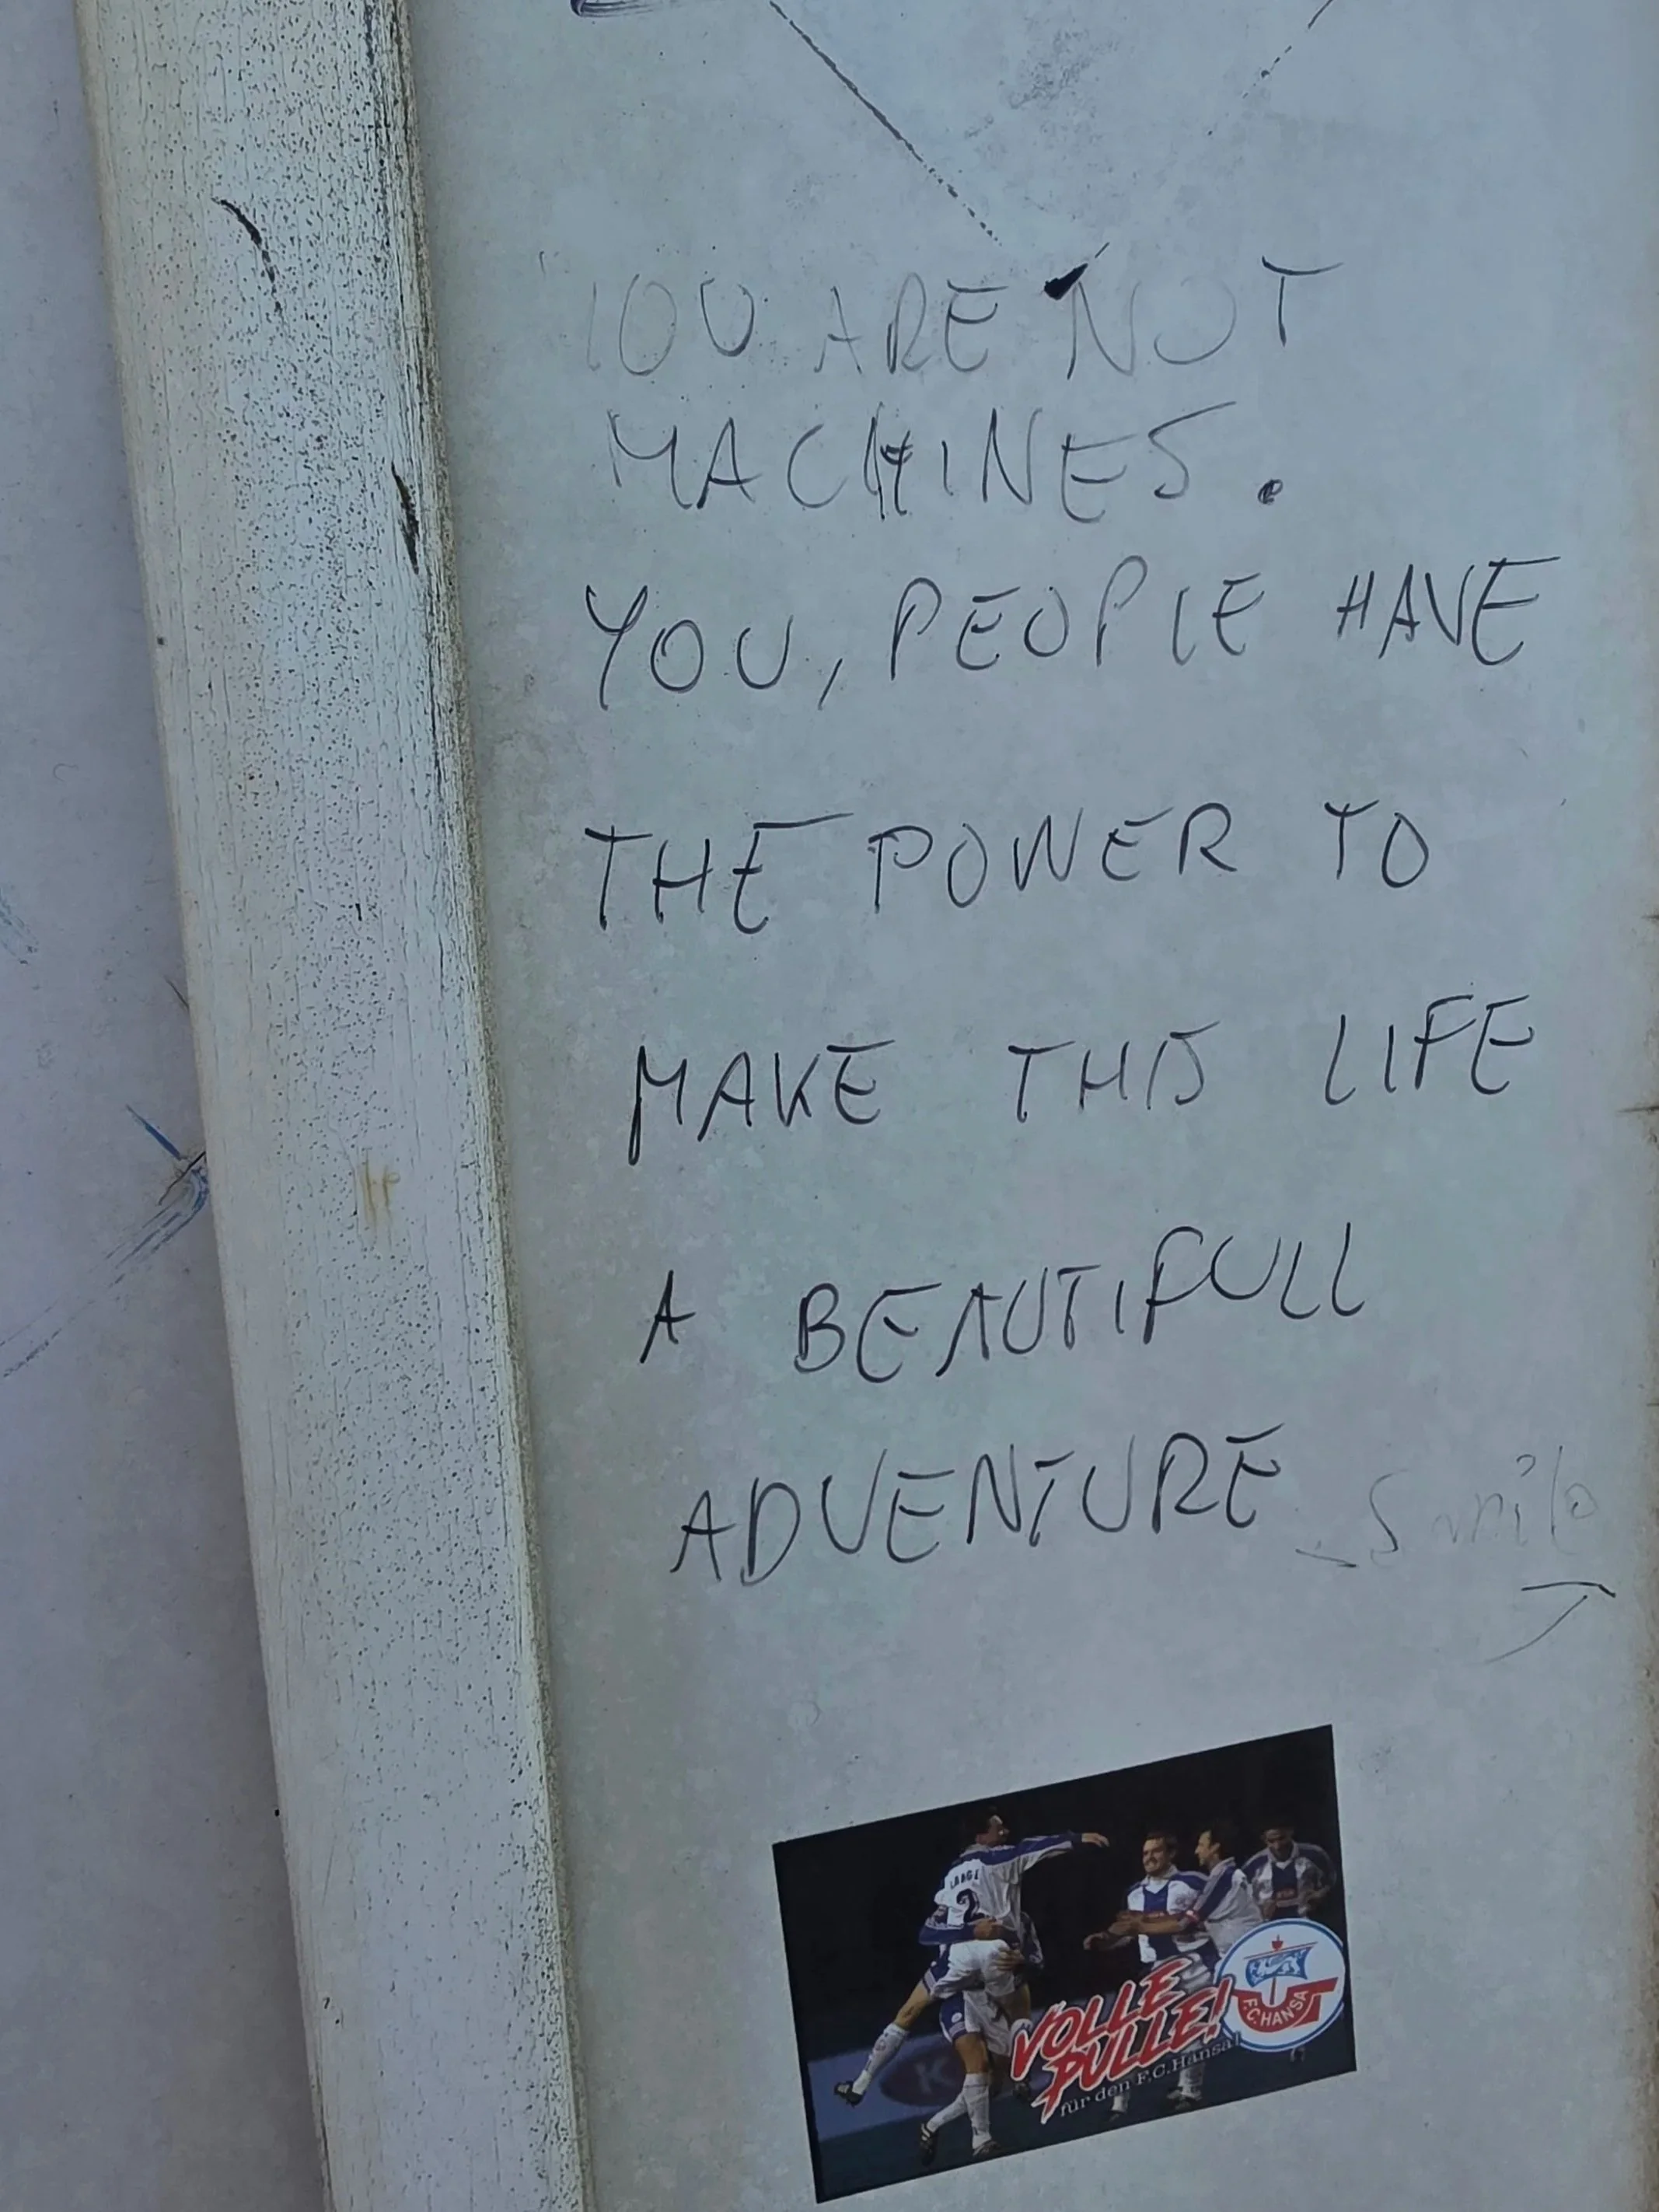 YOU ARE NOT
MACHINES.
YOU, PEOPLE HAVE
THE POWER TO
MAKE THIS LIFE
A BEAUTIFULL
ADVENTURE
Smile
LANGE
2
VOLLE
PULLE!
für den F.C.Hansa!
F.C.HANSA
K